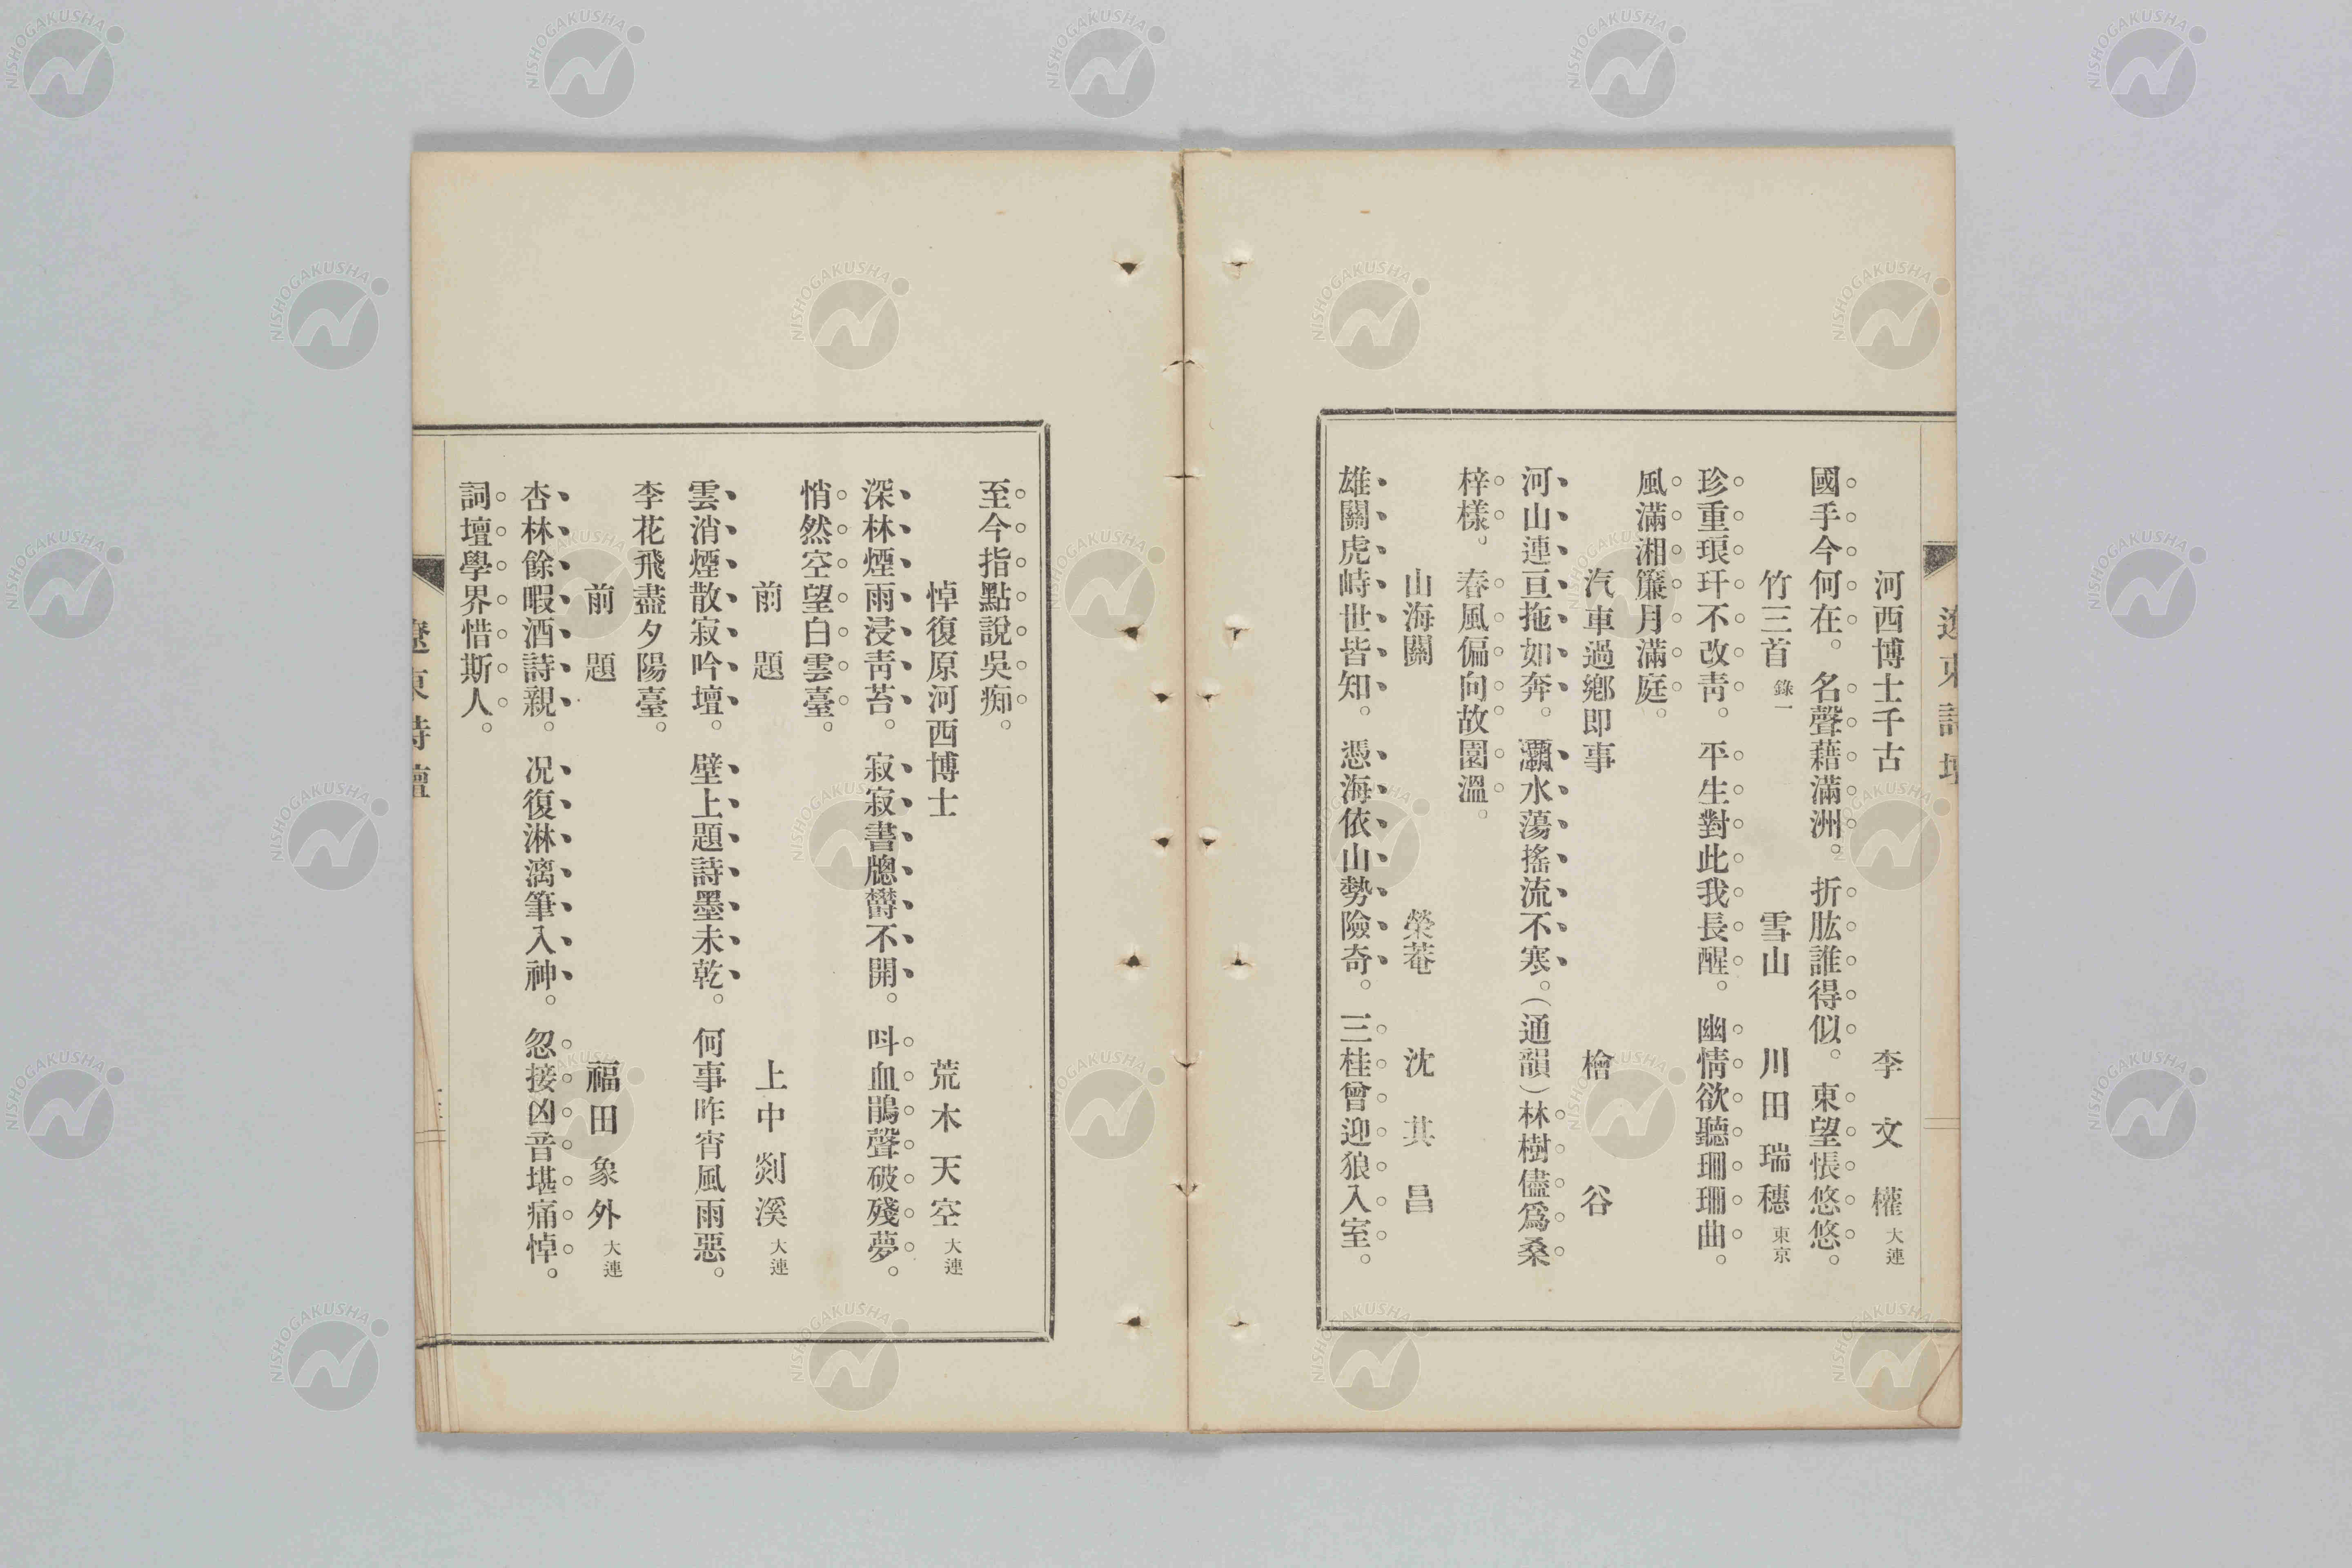 河西博士千古 李文權 大連
國手今何在。名聲藉滿洲。折肱誰得似。東望悵悠悠。
竹三首 錄一 雪山 川田瑞穗 東京
珍重琅玕不改靑。平生對此我長醒。幽情欲聽珊珊曲。
風滿湘簾月滿庭。
汽車過鄕即事 檜谷
河山連亘拖如奔。灞水蕩搖流不寒。(通韻)林樹儘爲桑
梓樣。春風偏向故園溫。
山海關 榮菴 沈其昌
雄關虎峙世皆知。憑海依山勢險奇。三桂曾迎狼入室。
至今指點說吳痴。
悼復原河西博士 荒木天空 大連
深林煙雨浸靑苔。寂寂書牕欝不開。呌血鵑聲破殘夢。
悄然空望白雲臺。
前題 上中剡溪 大連
雲消煙散寂吟壇。壁上題詩墨未乾。何事昨宵風雨惡。
李花飛盡夕陽臺。
前題 福田象外 大連
杏林餘暇酒詩親。况復淋漓筆入神。忽接凶音堪痛悼。
詞壇學界惜斯人。
遼東詩壇
NISHOGAKUSHA